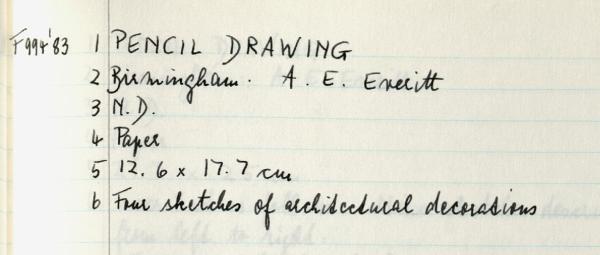 F994'83 1 PENCIL DRAWING
2 Birmingham. A. E. Everitt
3 N.D.
4 Paper
5 12.6 x 17.7 cm
6 Four sketches of architectural decorations